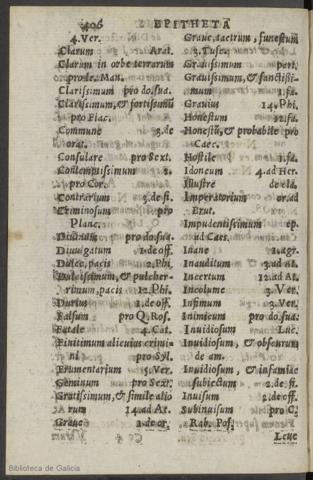 406 EPITHETA
4. Ver.
Clarum Arat.
Clarum in orbe terrarum
pro le. Man.
Clarissimum pro do. sua.
Clarissimum, & fortissimū
pro Flac.
Commune 3. de
orat.
Consulare pro Sext.
Contemptissimum 2.
pro Cor.
Contrarium 5. de fi.
Criminosum pro
Planc.
Diuinum pro do. sua.
Diuulgatum 1. de off.
Dulce, pacis 2. Phi.
Dulcissimum, & pulcher-
rimum, pacis 12. Phi.
Durius 1. de off.
Falsum pro Q. Ros.
Fatale 4. Cat.
Finitimum alicuius crimi-
ni pro Syl.
Frumentarium 5. Ver.
Geminum pro Sext.
Gratissimum, & simile alio
rum 14. ad At.
Graue 1. de or.
Graue, taetrum, funestum
3. Tusc.
Grauissimum part.
Grauissimum, & sanctissi-
mum 1. fa.
Grauius 14. Phi.
Honestum 12. fa.
Honestū, & probabile pro
Caec.
Hostile 1. fa.
Idoneum 4. ad Her.
Illustre de cla.
Imperatorium or. ad
Brut.
Impudentissimum ep.
ad Caes.
Inane 2. agr.
Inauditum 3. ad At.
Incertum 12. ad At.
Incolume 3. Ver.
Infimum 2. Ver.
Inimicum pro do. sua.
Inuidiosum Luc.
Inuidiosum, & obscurum
de am.
Inuidiosum, & infamiae
subiectum 2. de fi.
Inuisum 2. de off.
Subinuisum pro C.
Rab. Pos.
Leue
Biblioteca de Galicia